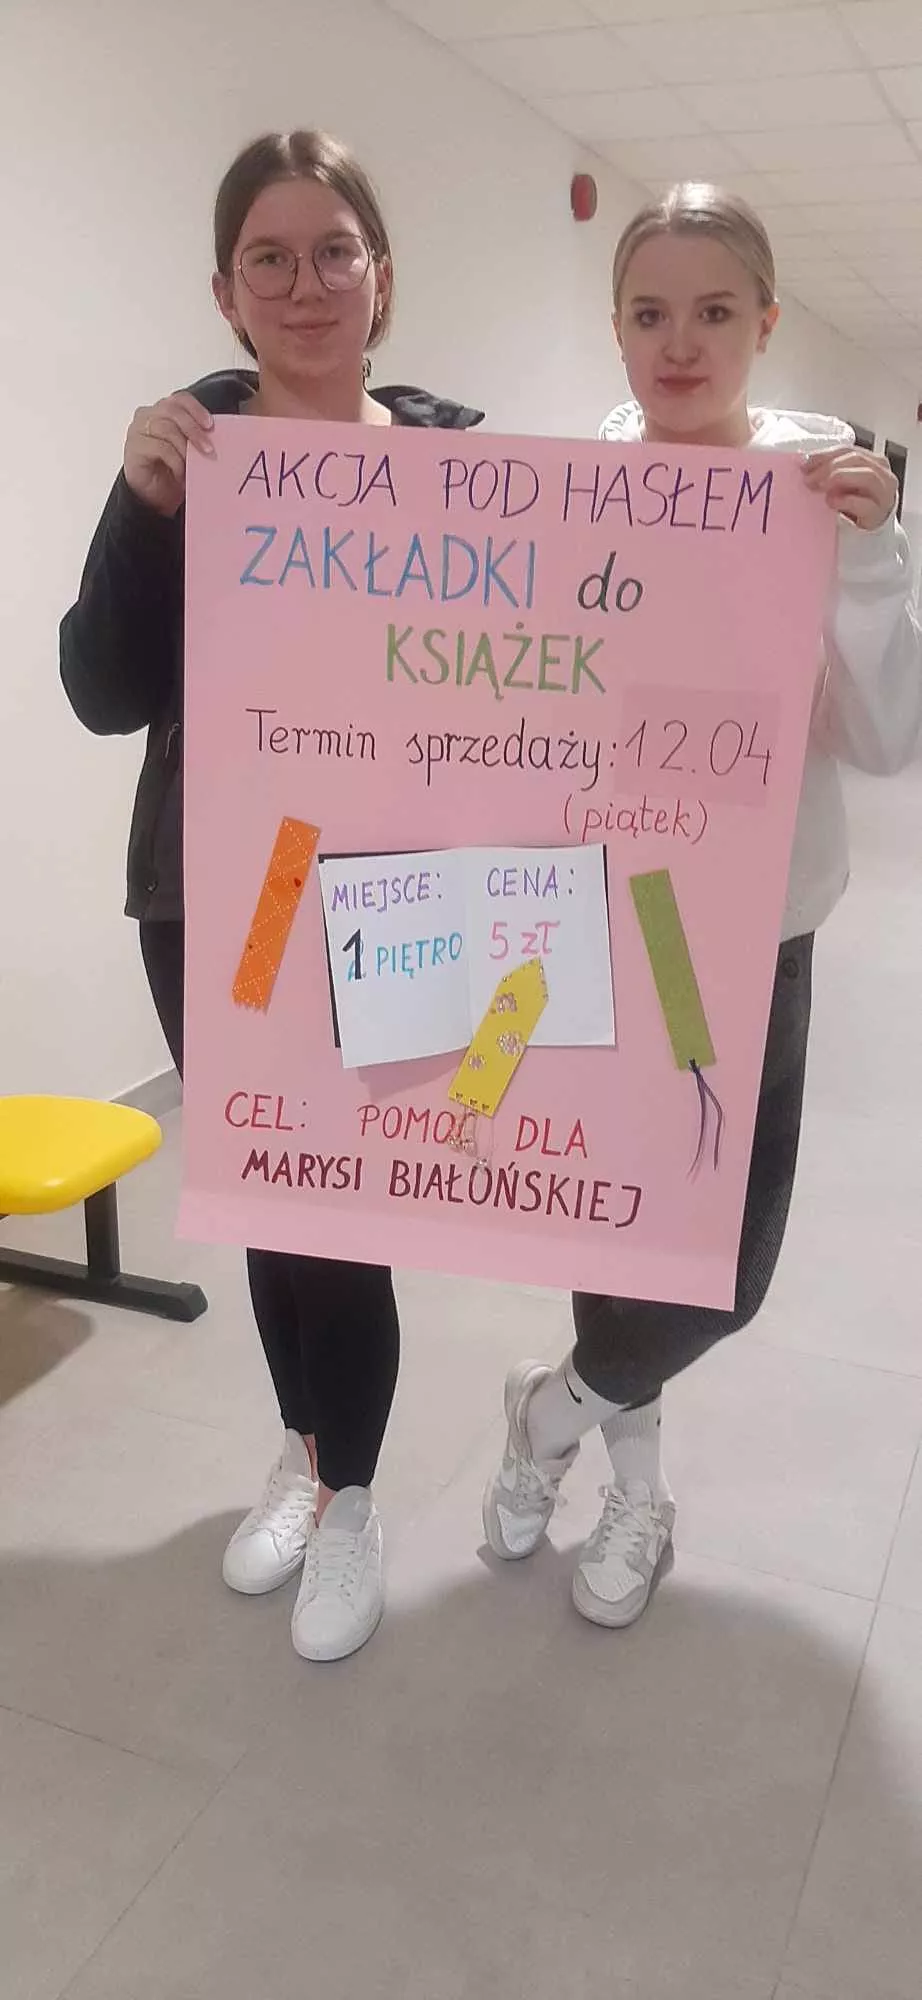 AKCJA POD HASŁEM
ZAKŁADKI do
KSIĄŻEK
Termin sprzedaży: 12.04
(piątek)
MIEJSCE:
1 PIĘTRO
CENA:
5 zł
CEL: POMOC DLA
MARYSI BIAŁOŃSKIEJ